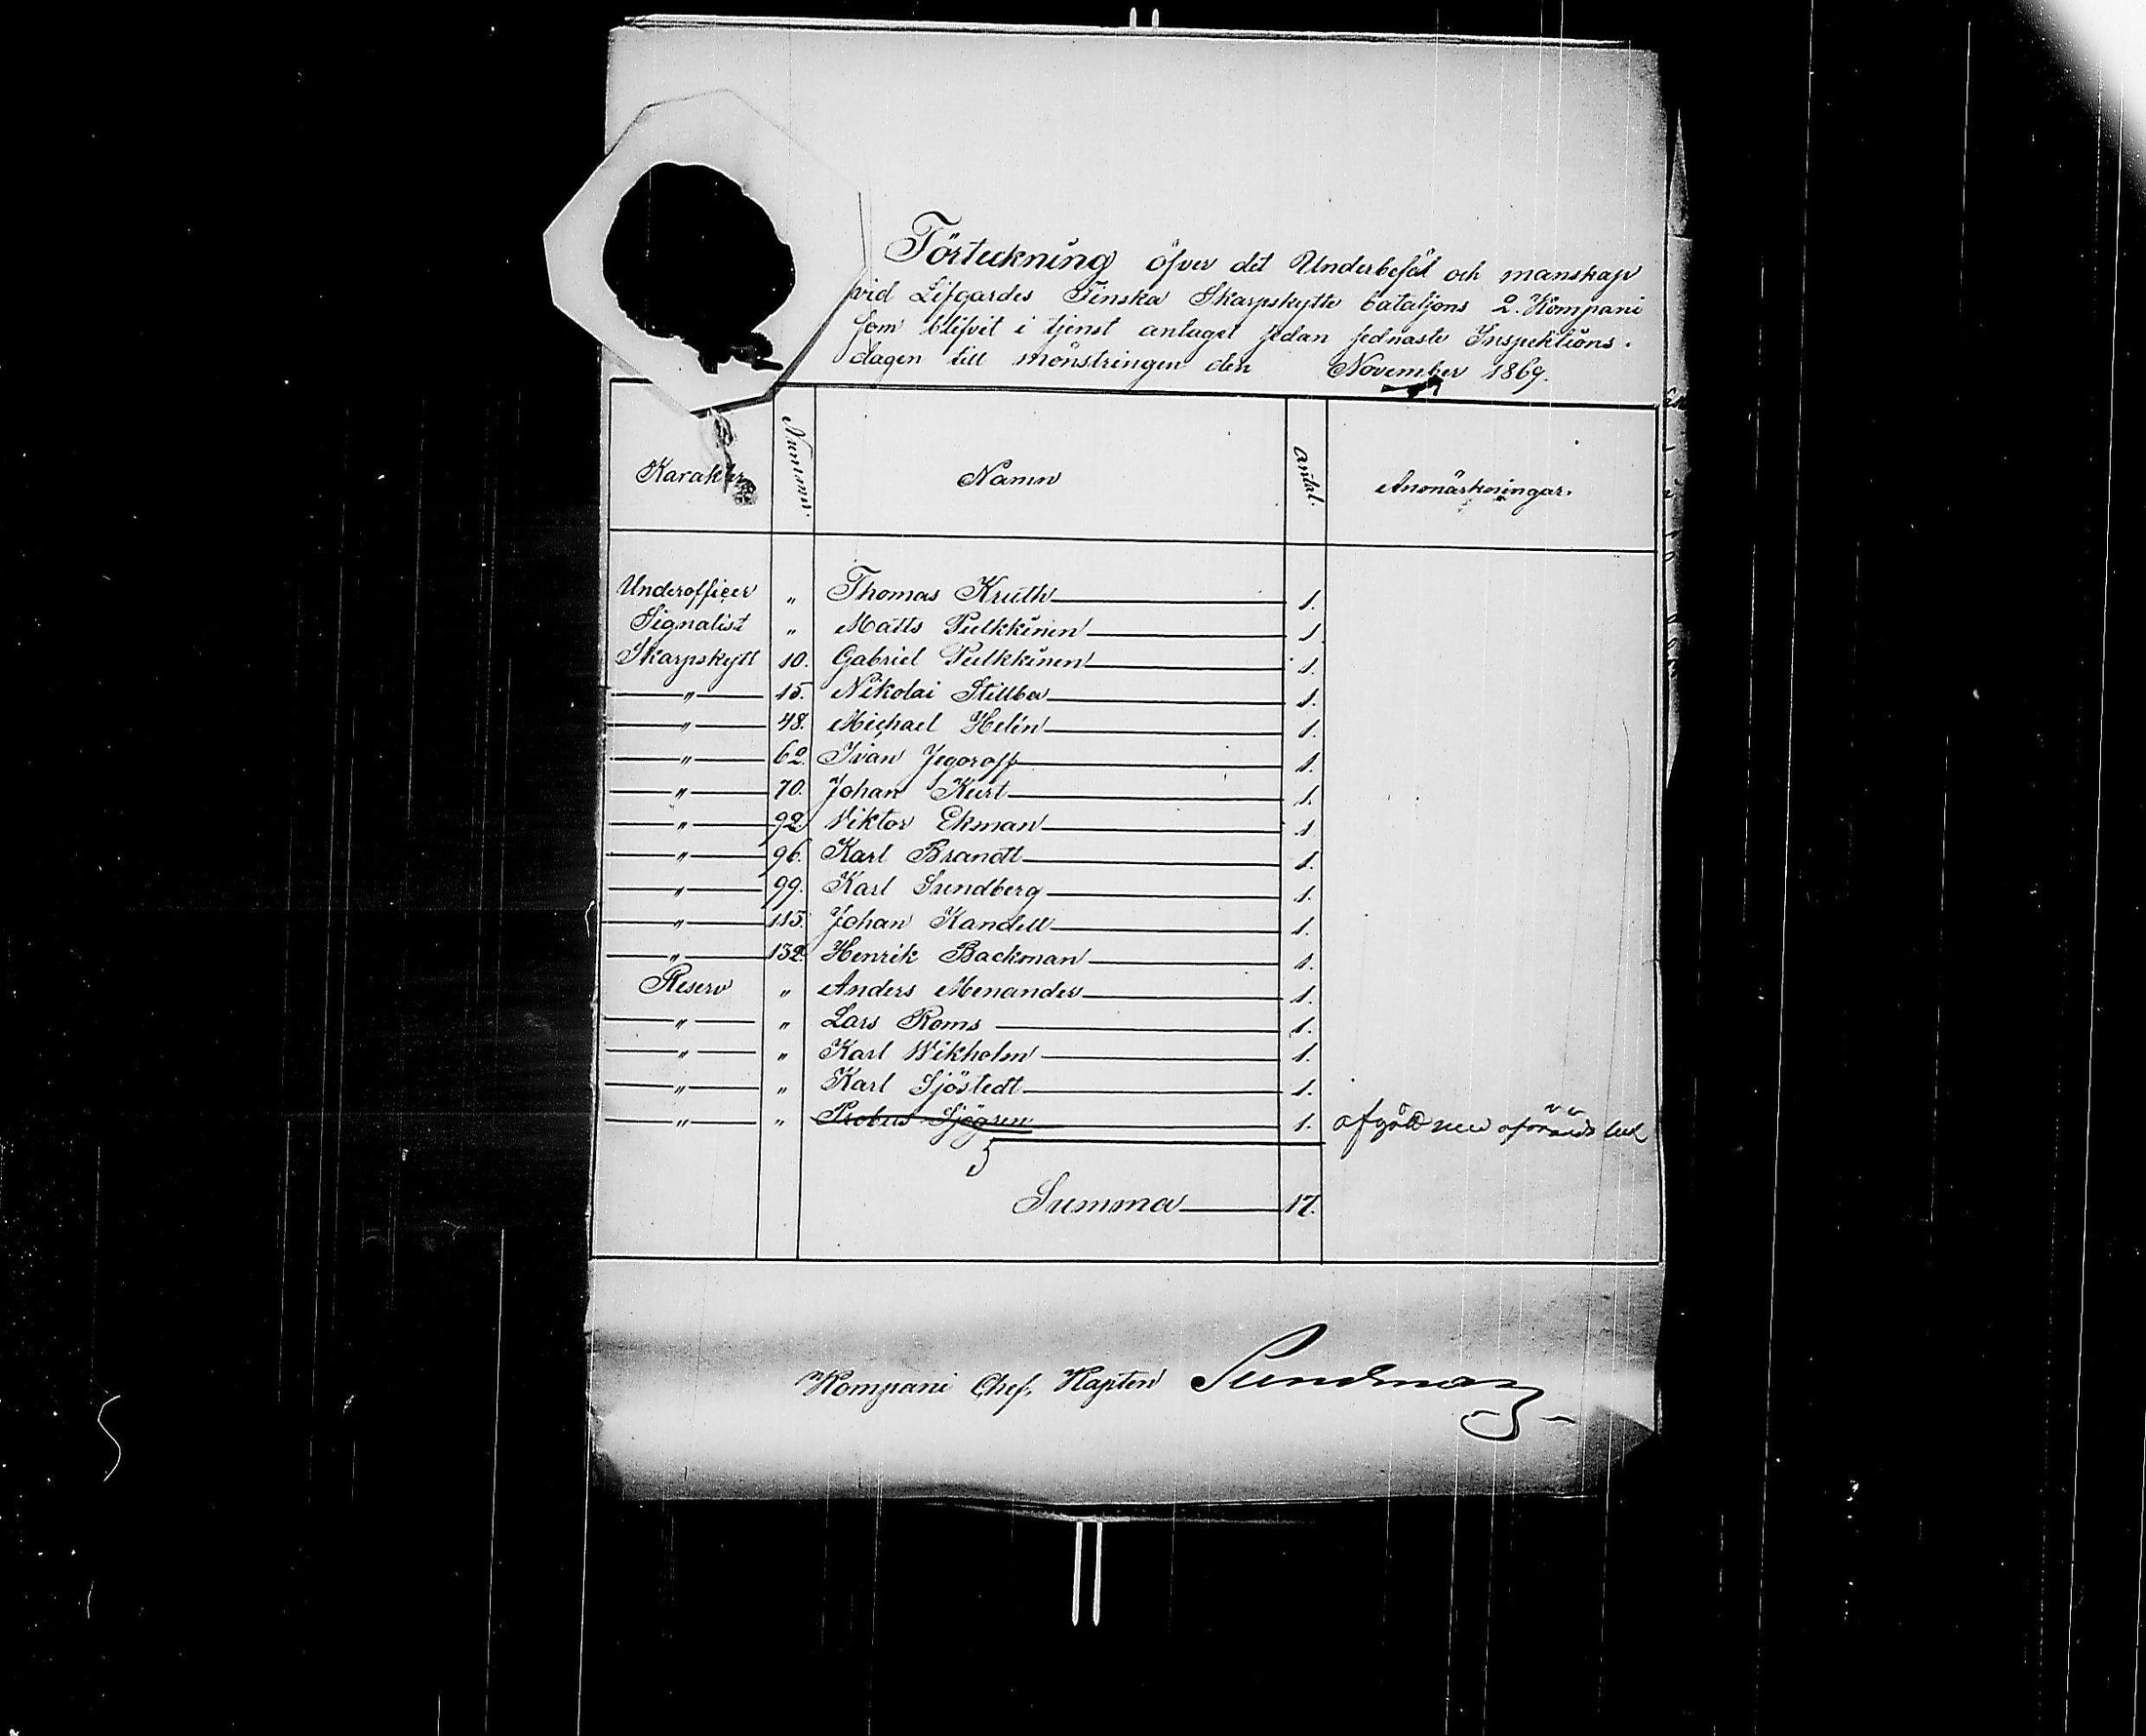 Förteckning öfver det Underbefäl och manskap
vid Lifgardes Finska Skarpskytte bataljons 2. Kompani
som blifvit i tjenst antaget sedan sednaste Inspektions-
dagen till mönstringen den November 1869.
Karakter Nummer. Namn Antal. Anmärkningar.
Underofficer " Thomas Kruth 1.
Signalist " Matts Pulkkinen 1.
Skarpskytt 10. Gabriel Pulkkinen 1.
" 15. Nikolai Stillba 1.
" 48. Michael Helin 1.
" 62. Ivan Jegoroff 1.
" 70. Johan Kurt 1.
" 92. Viktor Ekman 1.
" 96. Karl Brandt 1.
" 99. Karl Sundberg 1.
" 115. Johan Kandell 1.
" 132. Henrik Backman 1.
Reserv " Anders Menander 1.
" " Lars Roms 1.
" " Karl Wikholm 1.
" " Karl Sjöstedt 1.
" " Probus Sjögren 1. afgått med
5
Summa 17.
Kompani Chef, Kapten Sundman